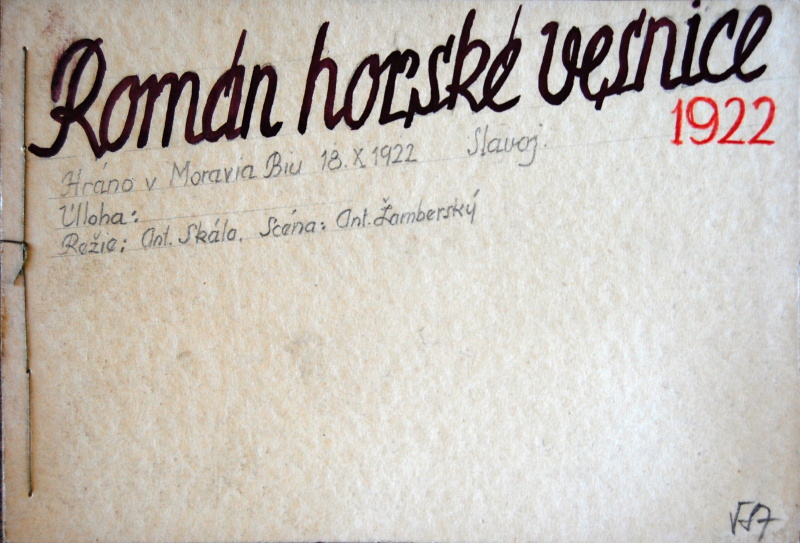 Román horské vesnice
1922
Hráno v Moravia Biu 18.X.1922 Slavoj.
Úloha:
Režie: Ant. Skála. Scéna: Ant. Žamberský